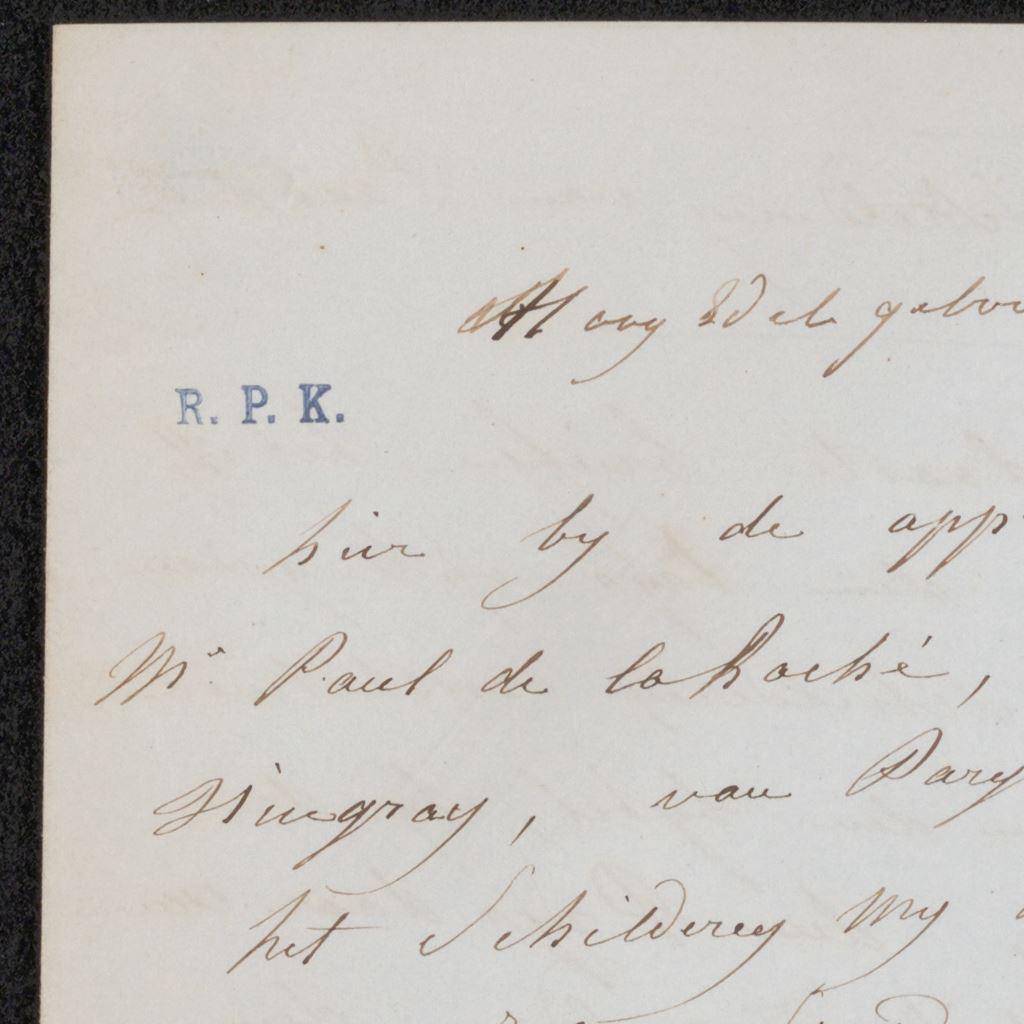 Hoog Wel gebo
R. P. K.
hier by de app
Mr. Paul de la Roché,
Gingray, van Pary
het Schilderey my